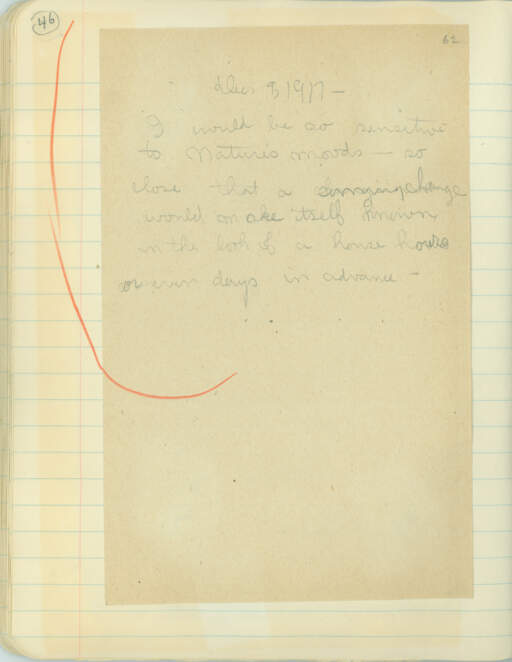 46
62
Dec. 8 1917 —
I would be so sensitive
to Nature's moods — so
close that a change
would make itself known
in the look of a house hours
or even days in advance —